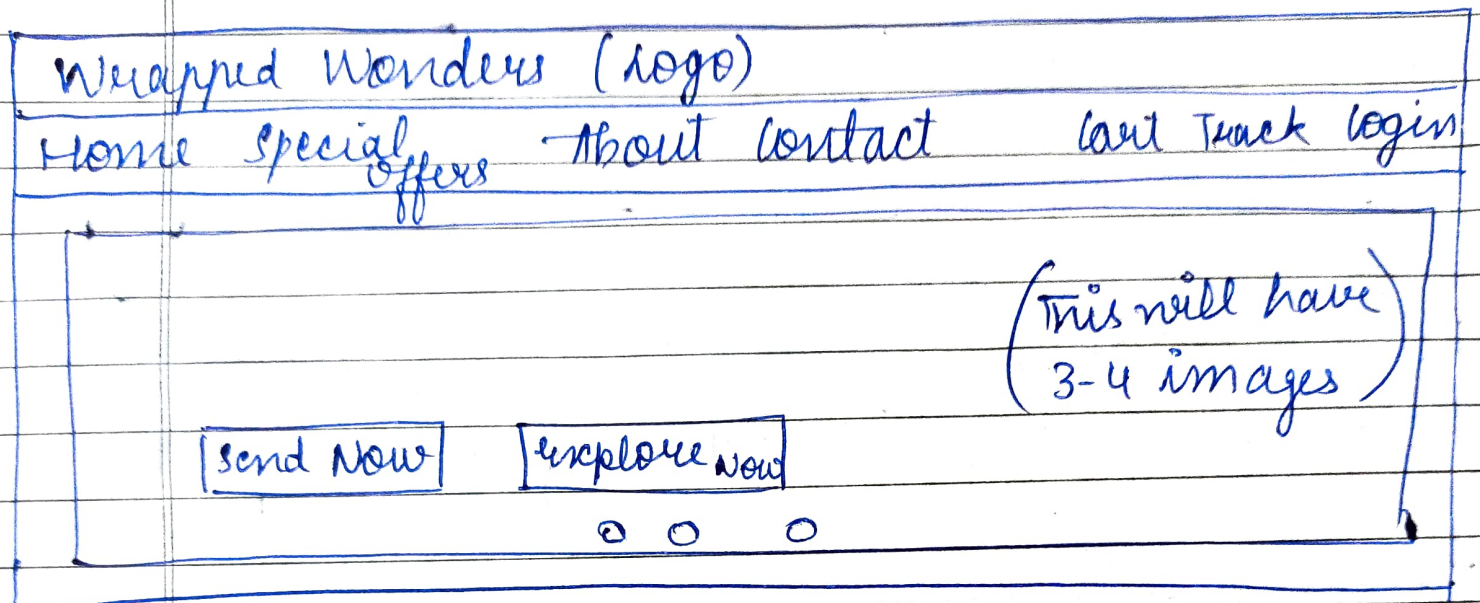 Wrapped Wonders (Logo)
Home Special Offers About Contact Cart Track Login
(This will have
3-4 images)
Send Now Explore Now